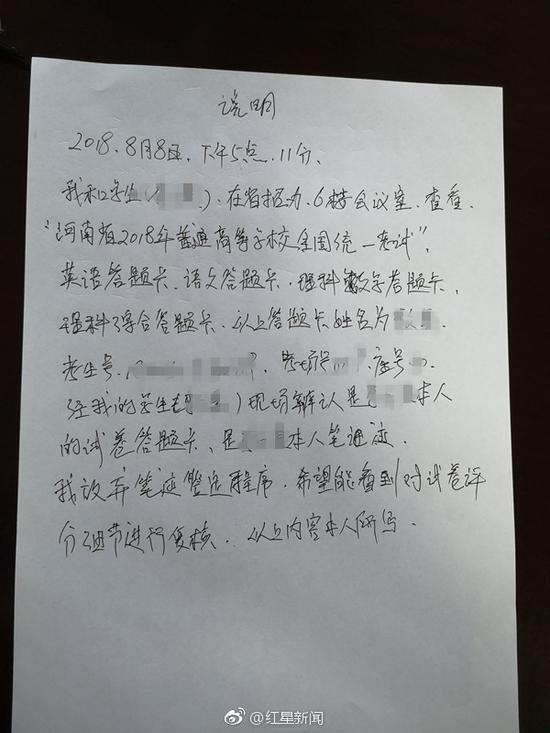 说明
2018.8月8日,下午5点.11分、
我和学生( ).在省招办.6楼会议室.查看.
"河南省2018年普通高等学校全国统一考试",
英语答题卡、语文答题卡.理科数学答题卡、
理科综合答题卡.以上答题卡姓名为
考生号. ,考场号 .座号 .
经我的学生( )现场辨认是 本人
的试卷答题卡、是 本人笔迹.
我放弃笔迹鉴定程序.希望能看到对试卷评
分细节进行复核.以上内容本人所写.
@红星新闻